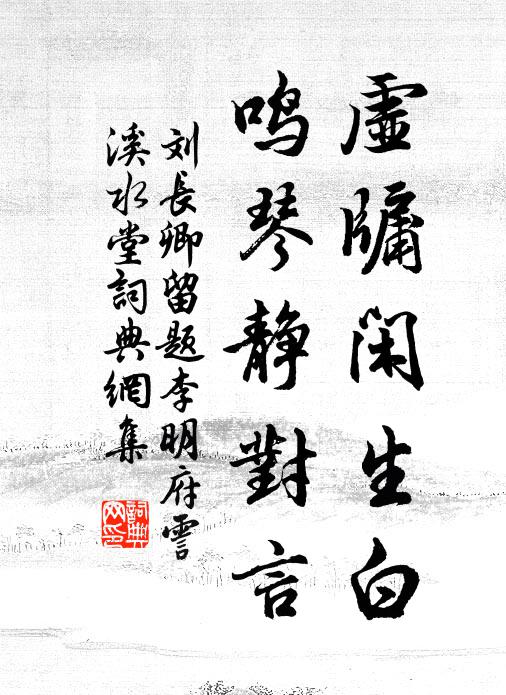 虚牖闲生白
鸣琴静對言
刘長卿留题李明府霅
溪水堂詞典網集
詞典
网印